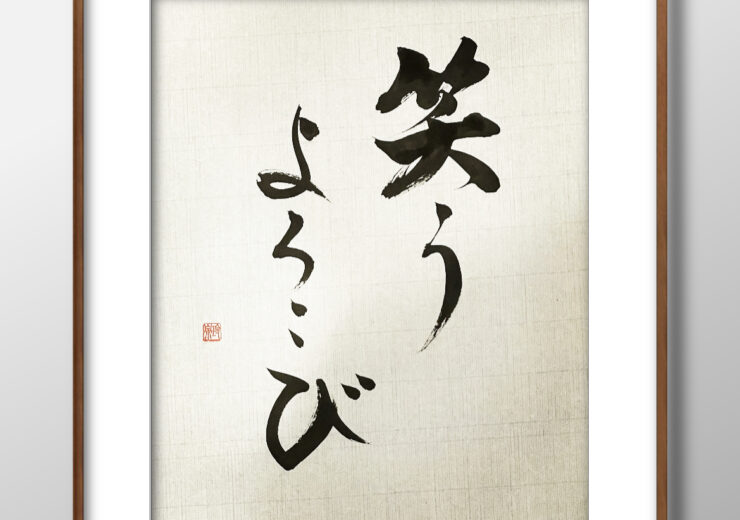 笑う
よろこび